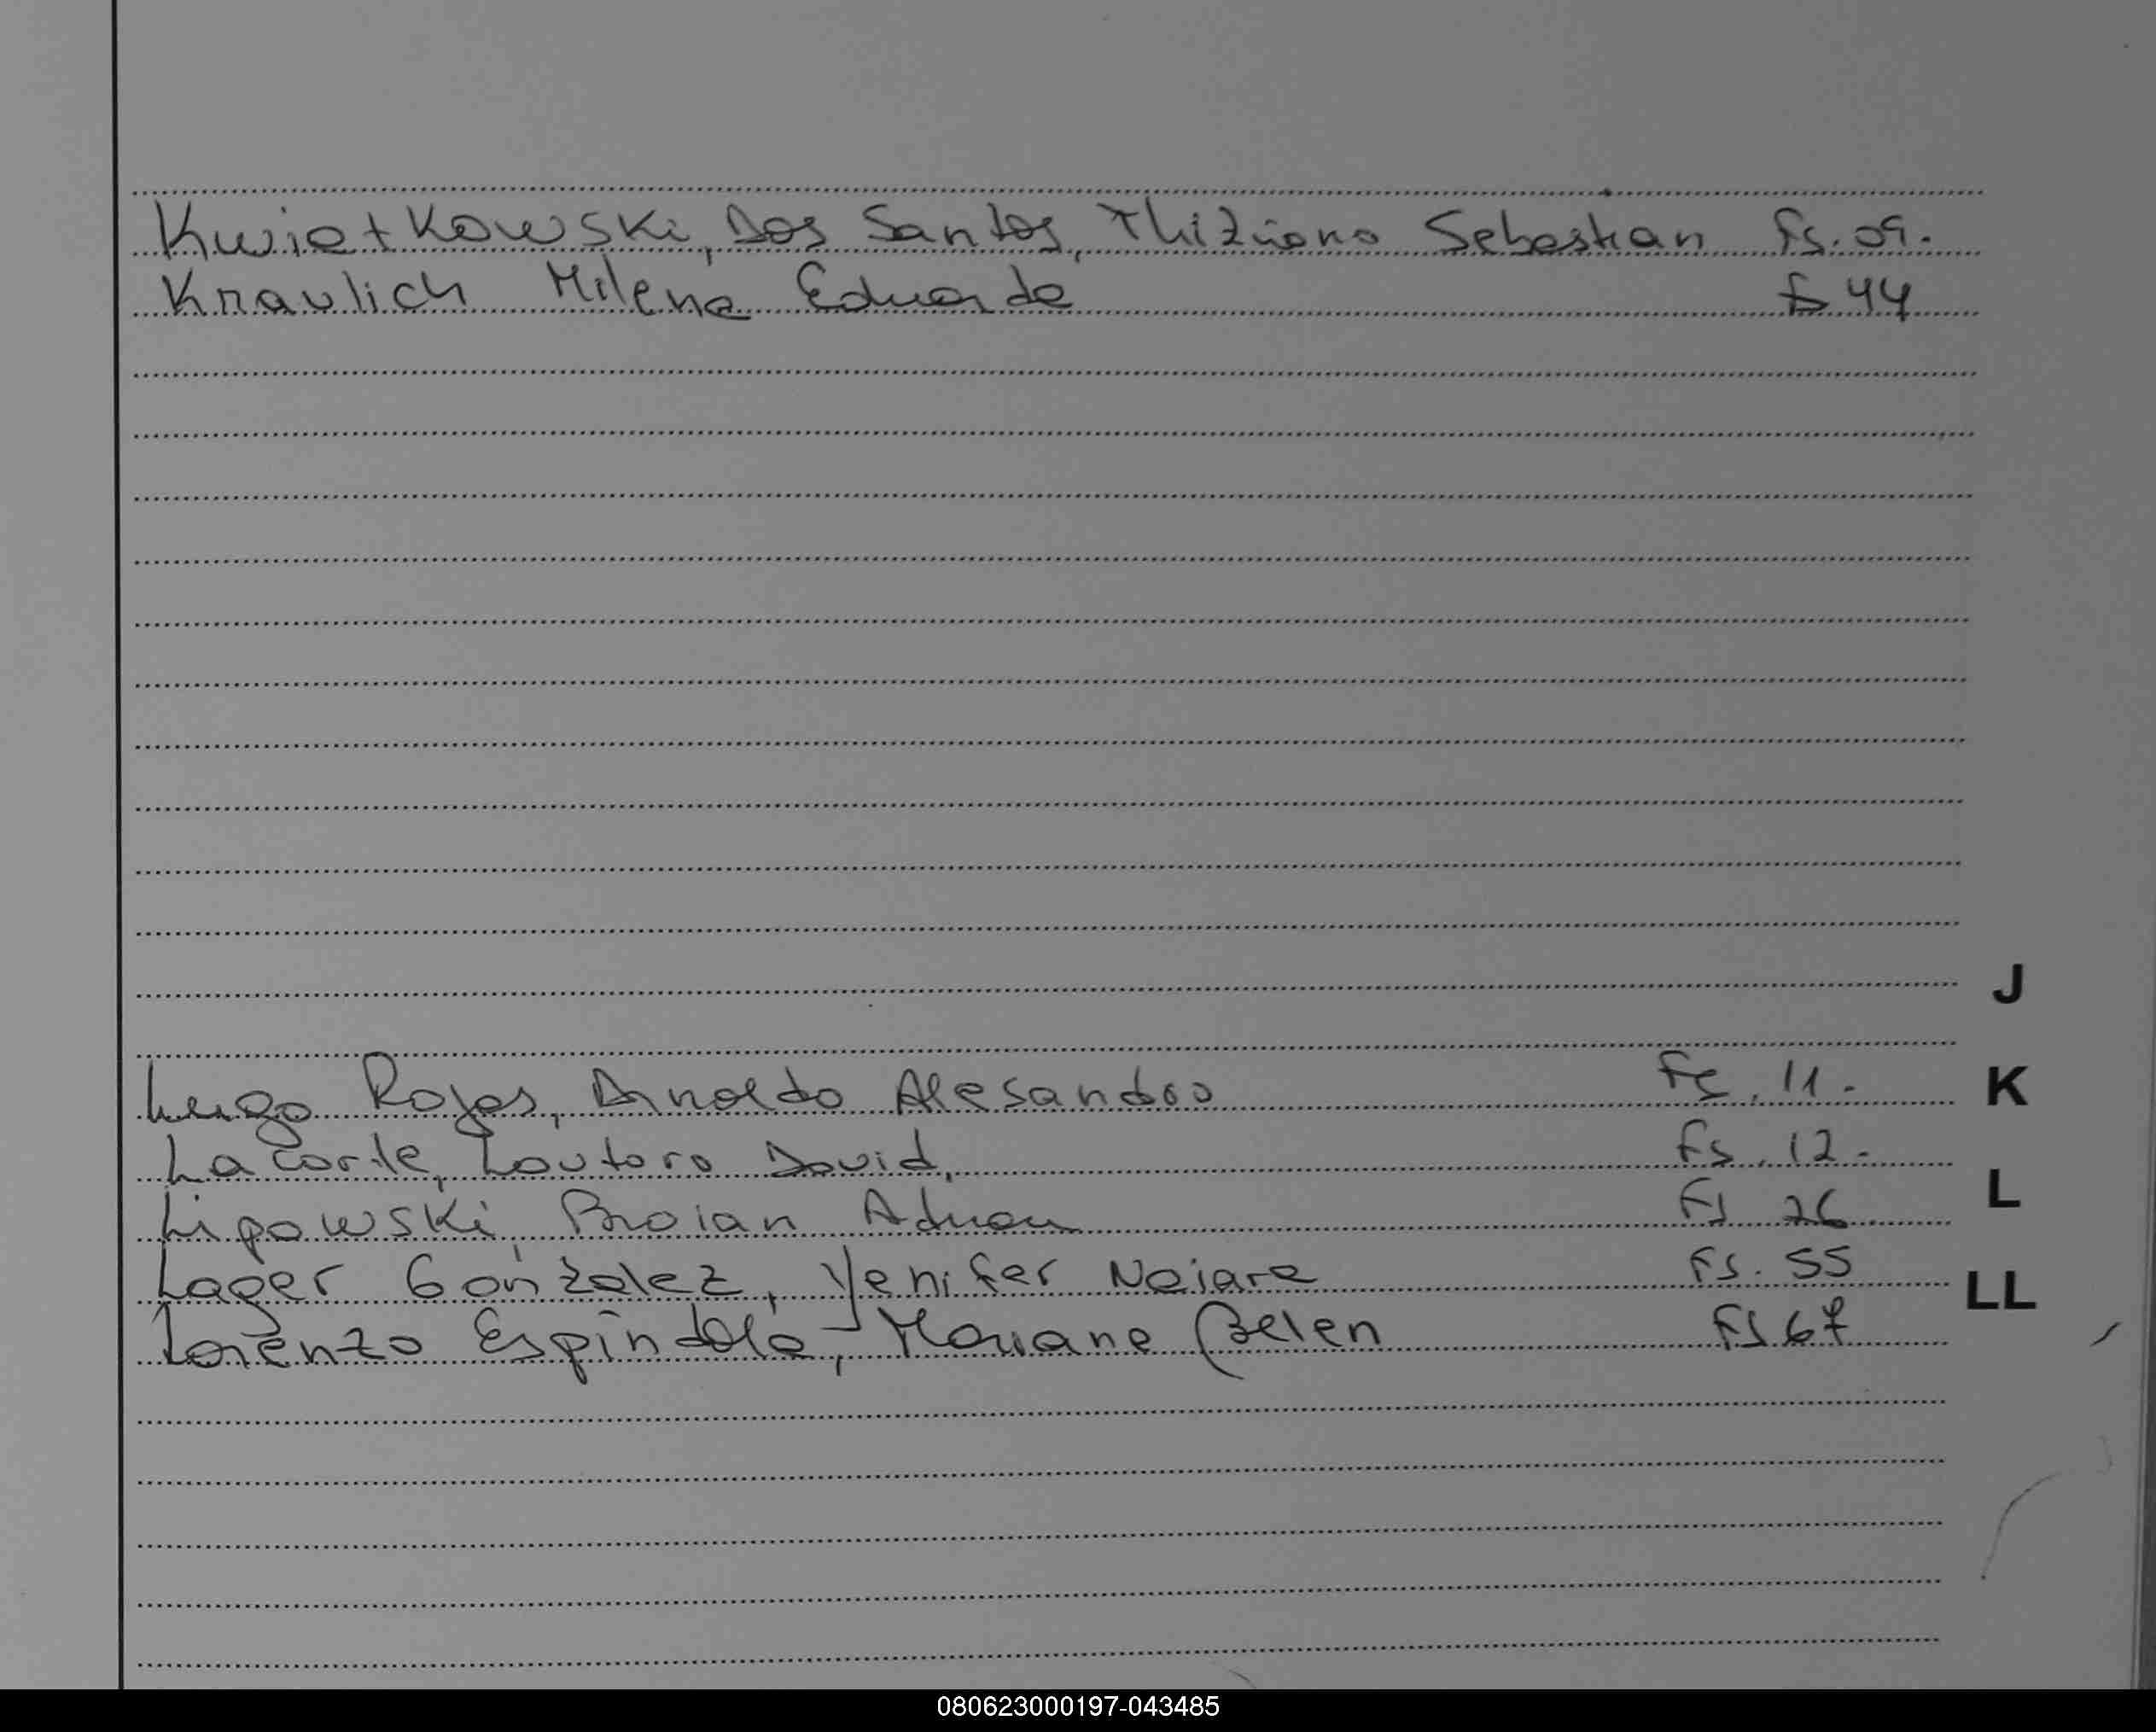 Kwiatkowski, Dos Santos, Thiziano Sebastian Fs. 09.
Kraulich Milena Eduarda fs 44
J
Lugo Rojas, Arnoldo Alesandro Fs. 11.
K
Lacorte, Lautaro David, Fs. 12.
L
Lipowski, Braian Adrian Fs 26
Lager González, Yenifer Naiara Fs. 55
LL
Lorenzo Espíndola, Mariana Belen Fs 67
080623000197-043485